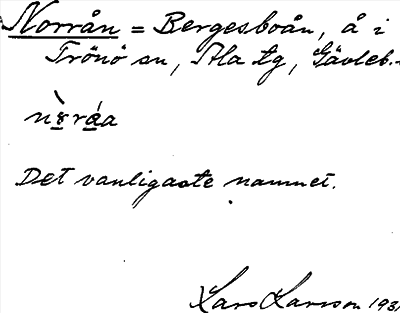 Norrån = Bergesboån, å i
Trönö sn, Ala tg, Gävleb.
Det vanligaste namnet.
Lars Larsson 193